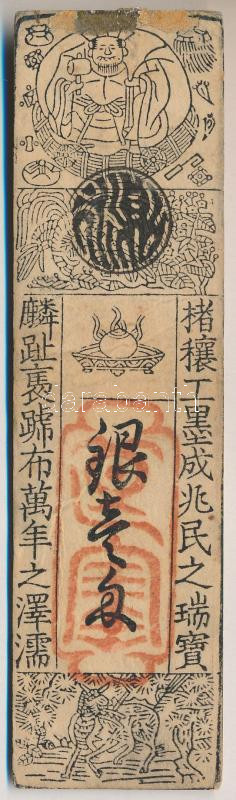 楮穰工墨成兆民之瑞寶
銀壹匁
麟趾褭蹄布萬年之澤濡
darabanth.com